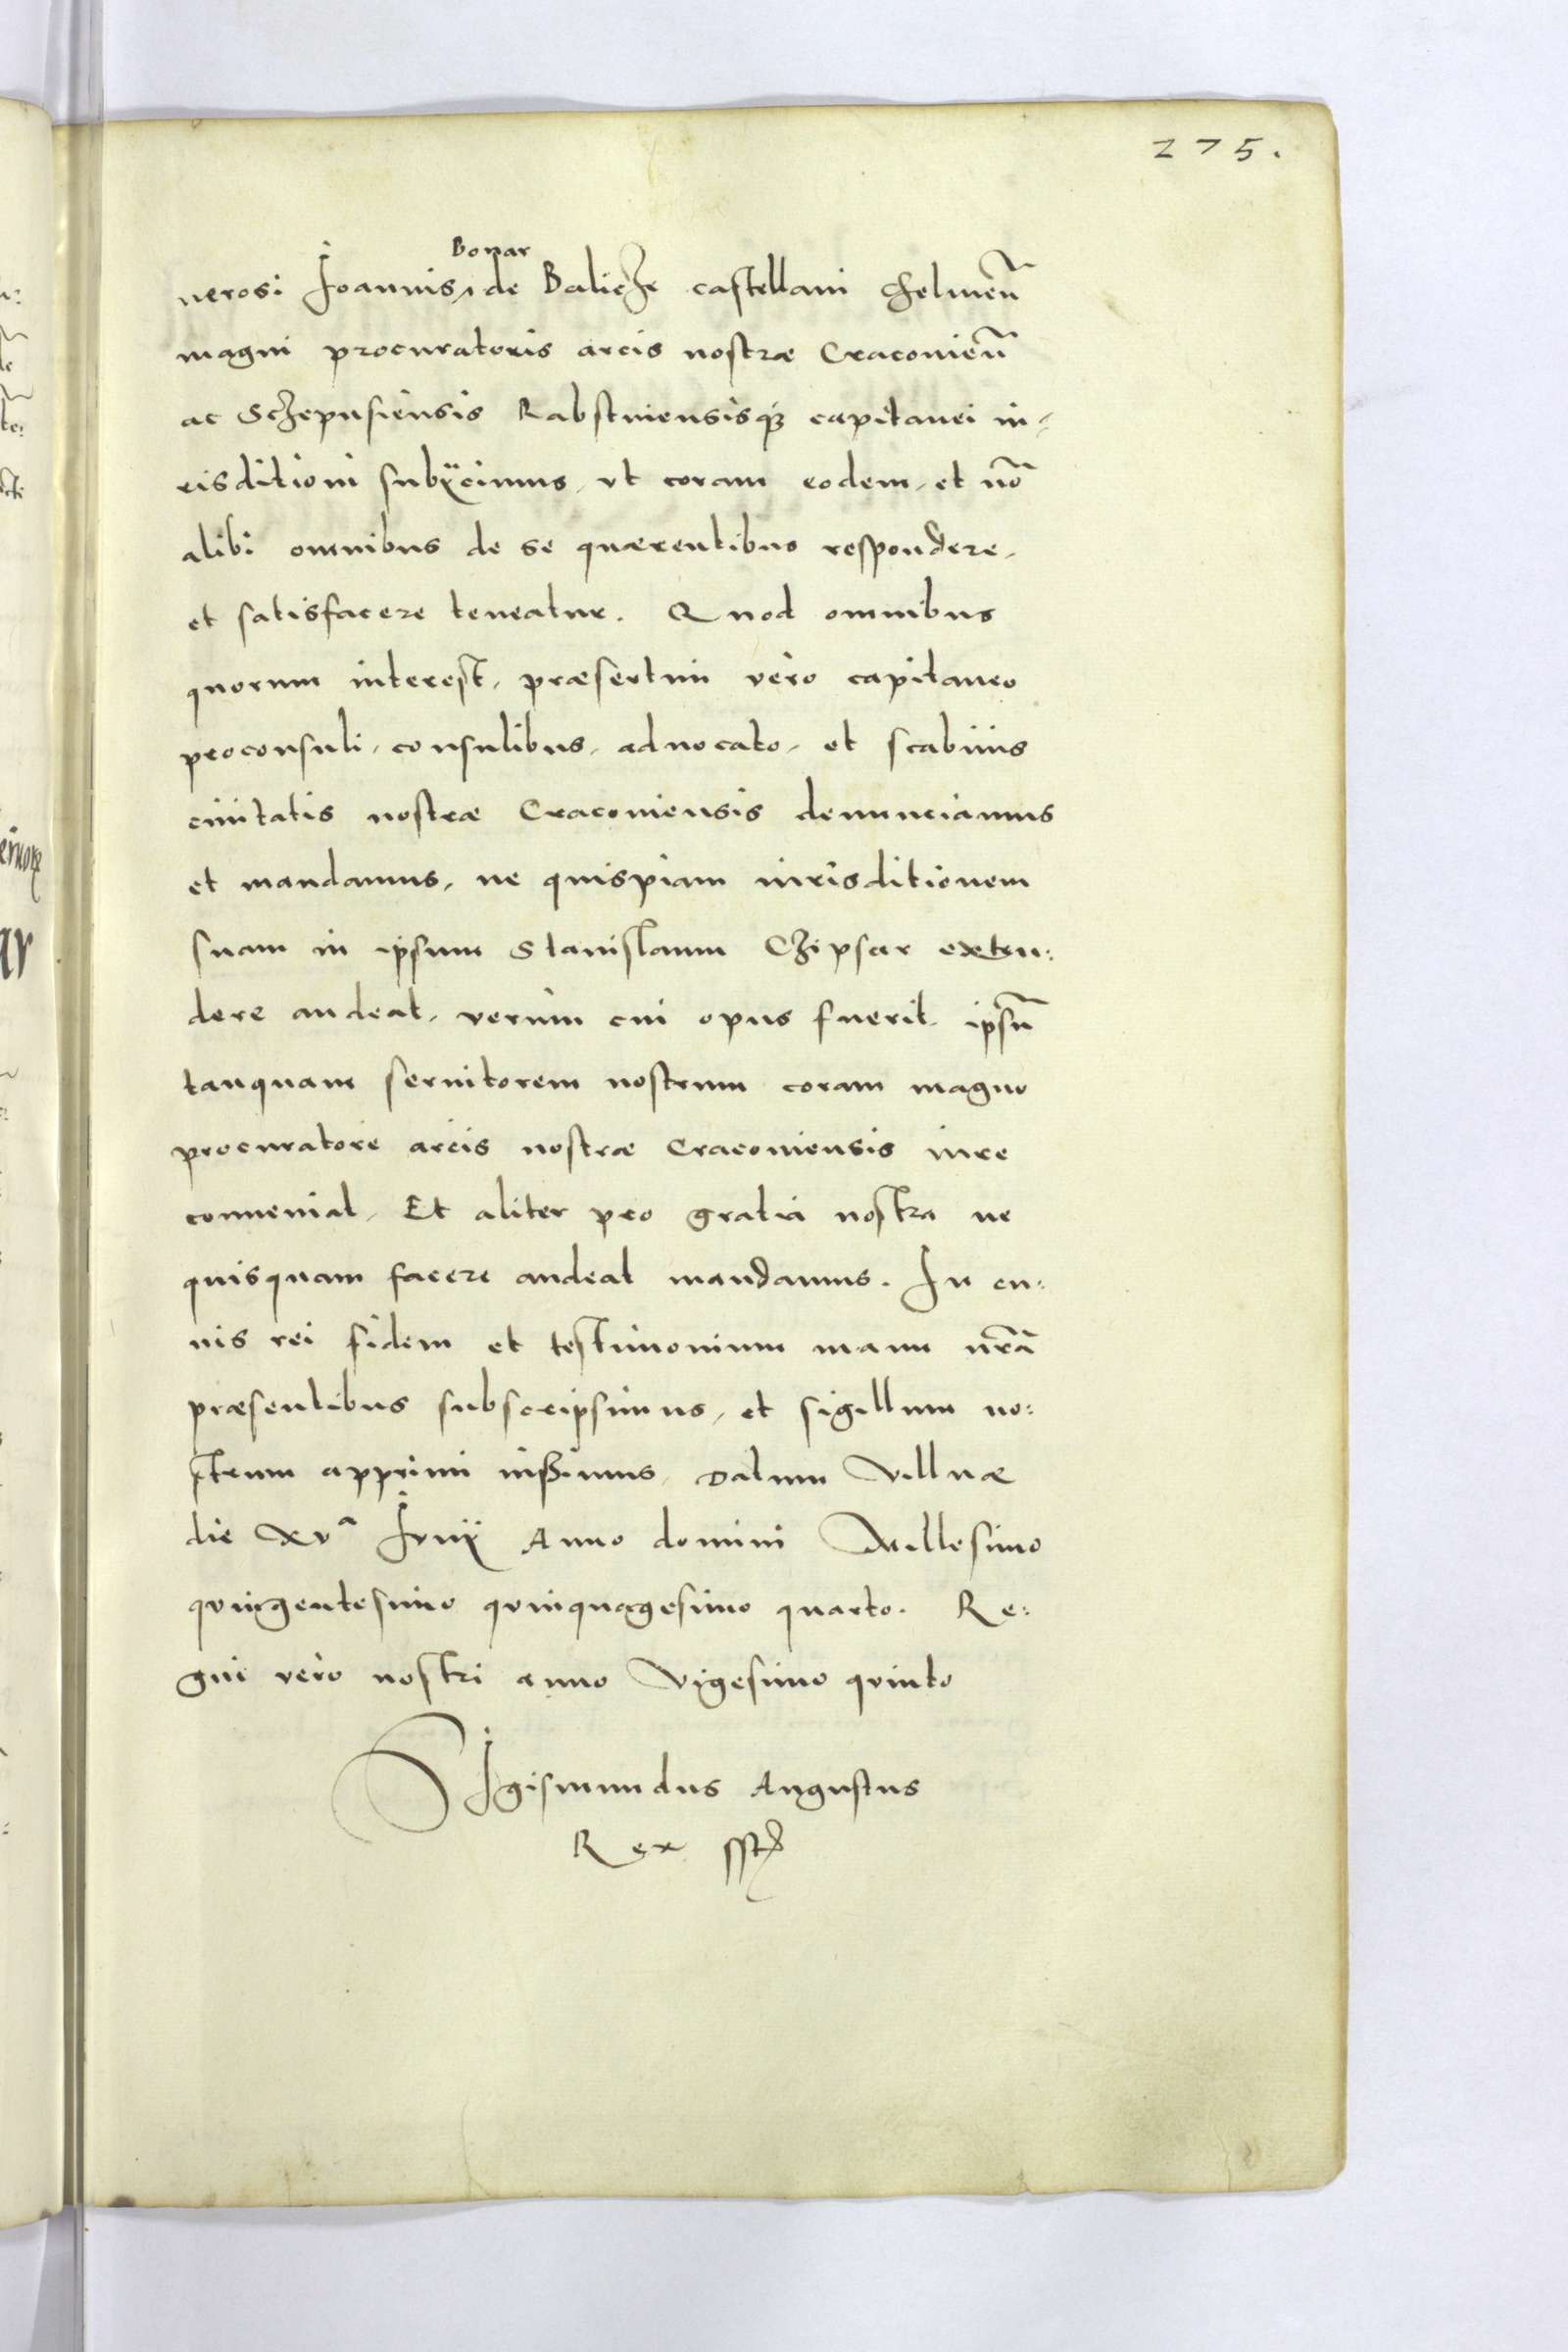 275.
Bonar
nerosi Joannis, de Baliche castellani chelmen̄
magni procuratoris arcis nostræ Cracovien̄
ac Schepusiensis Rabstinensisqȝ capitanei iu-
risditioni subÿcimus, ut coram eodem, et nō
alibi omnibus de se quærentibus respondere,
et satisfacere teneatur. Quod omnibus
quorum interest, præsertim vero capitaneo
proconsuli, consulibus, advocato, et scabinis
civitatis nostræ Cracoviensis denunciamus
et mandamus, ne quispiam iurisditionem
suam in ipsum Stanislaum Chipser exten:
dere audeat, verùm cui opus fuerit, ipsū
tanquam servitorem nostrum coram magno
procuratore arcis nostræ Cracoviensis iure
conveniat, Et aliter pro gratia nostra ne
quisquam facere audeat mandamus. In cu:
ius rei fidem et testimonium manu nr̄a
præsentibus subscripsimus, et sigillum no:
strum apprimi iussimus, Datum Villnæ
die xvª Junÿ Anno domini Millesimo
quingentesimo quinquagesimo quarto. Re:
gni vero nostri anno vigesimo quinto
Sigismundus Augustus
Rex sst